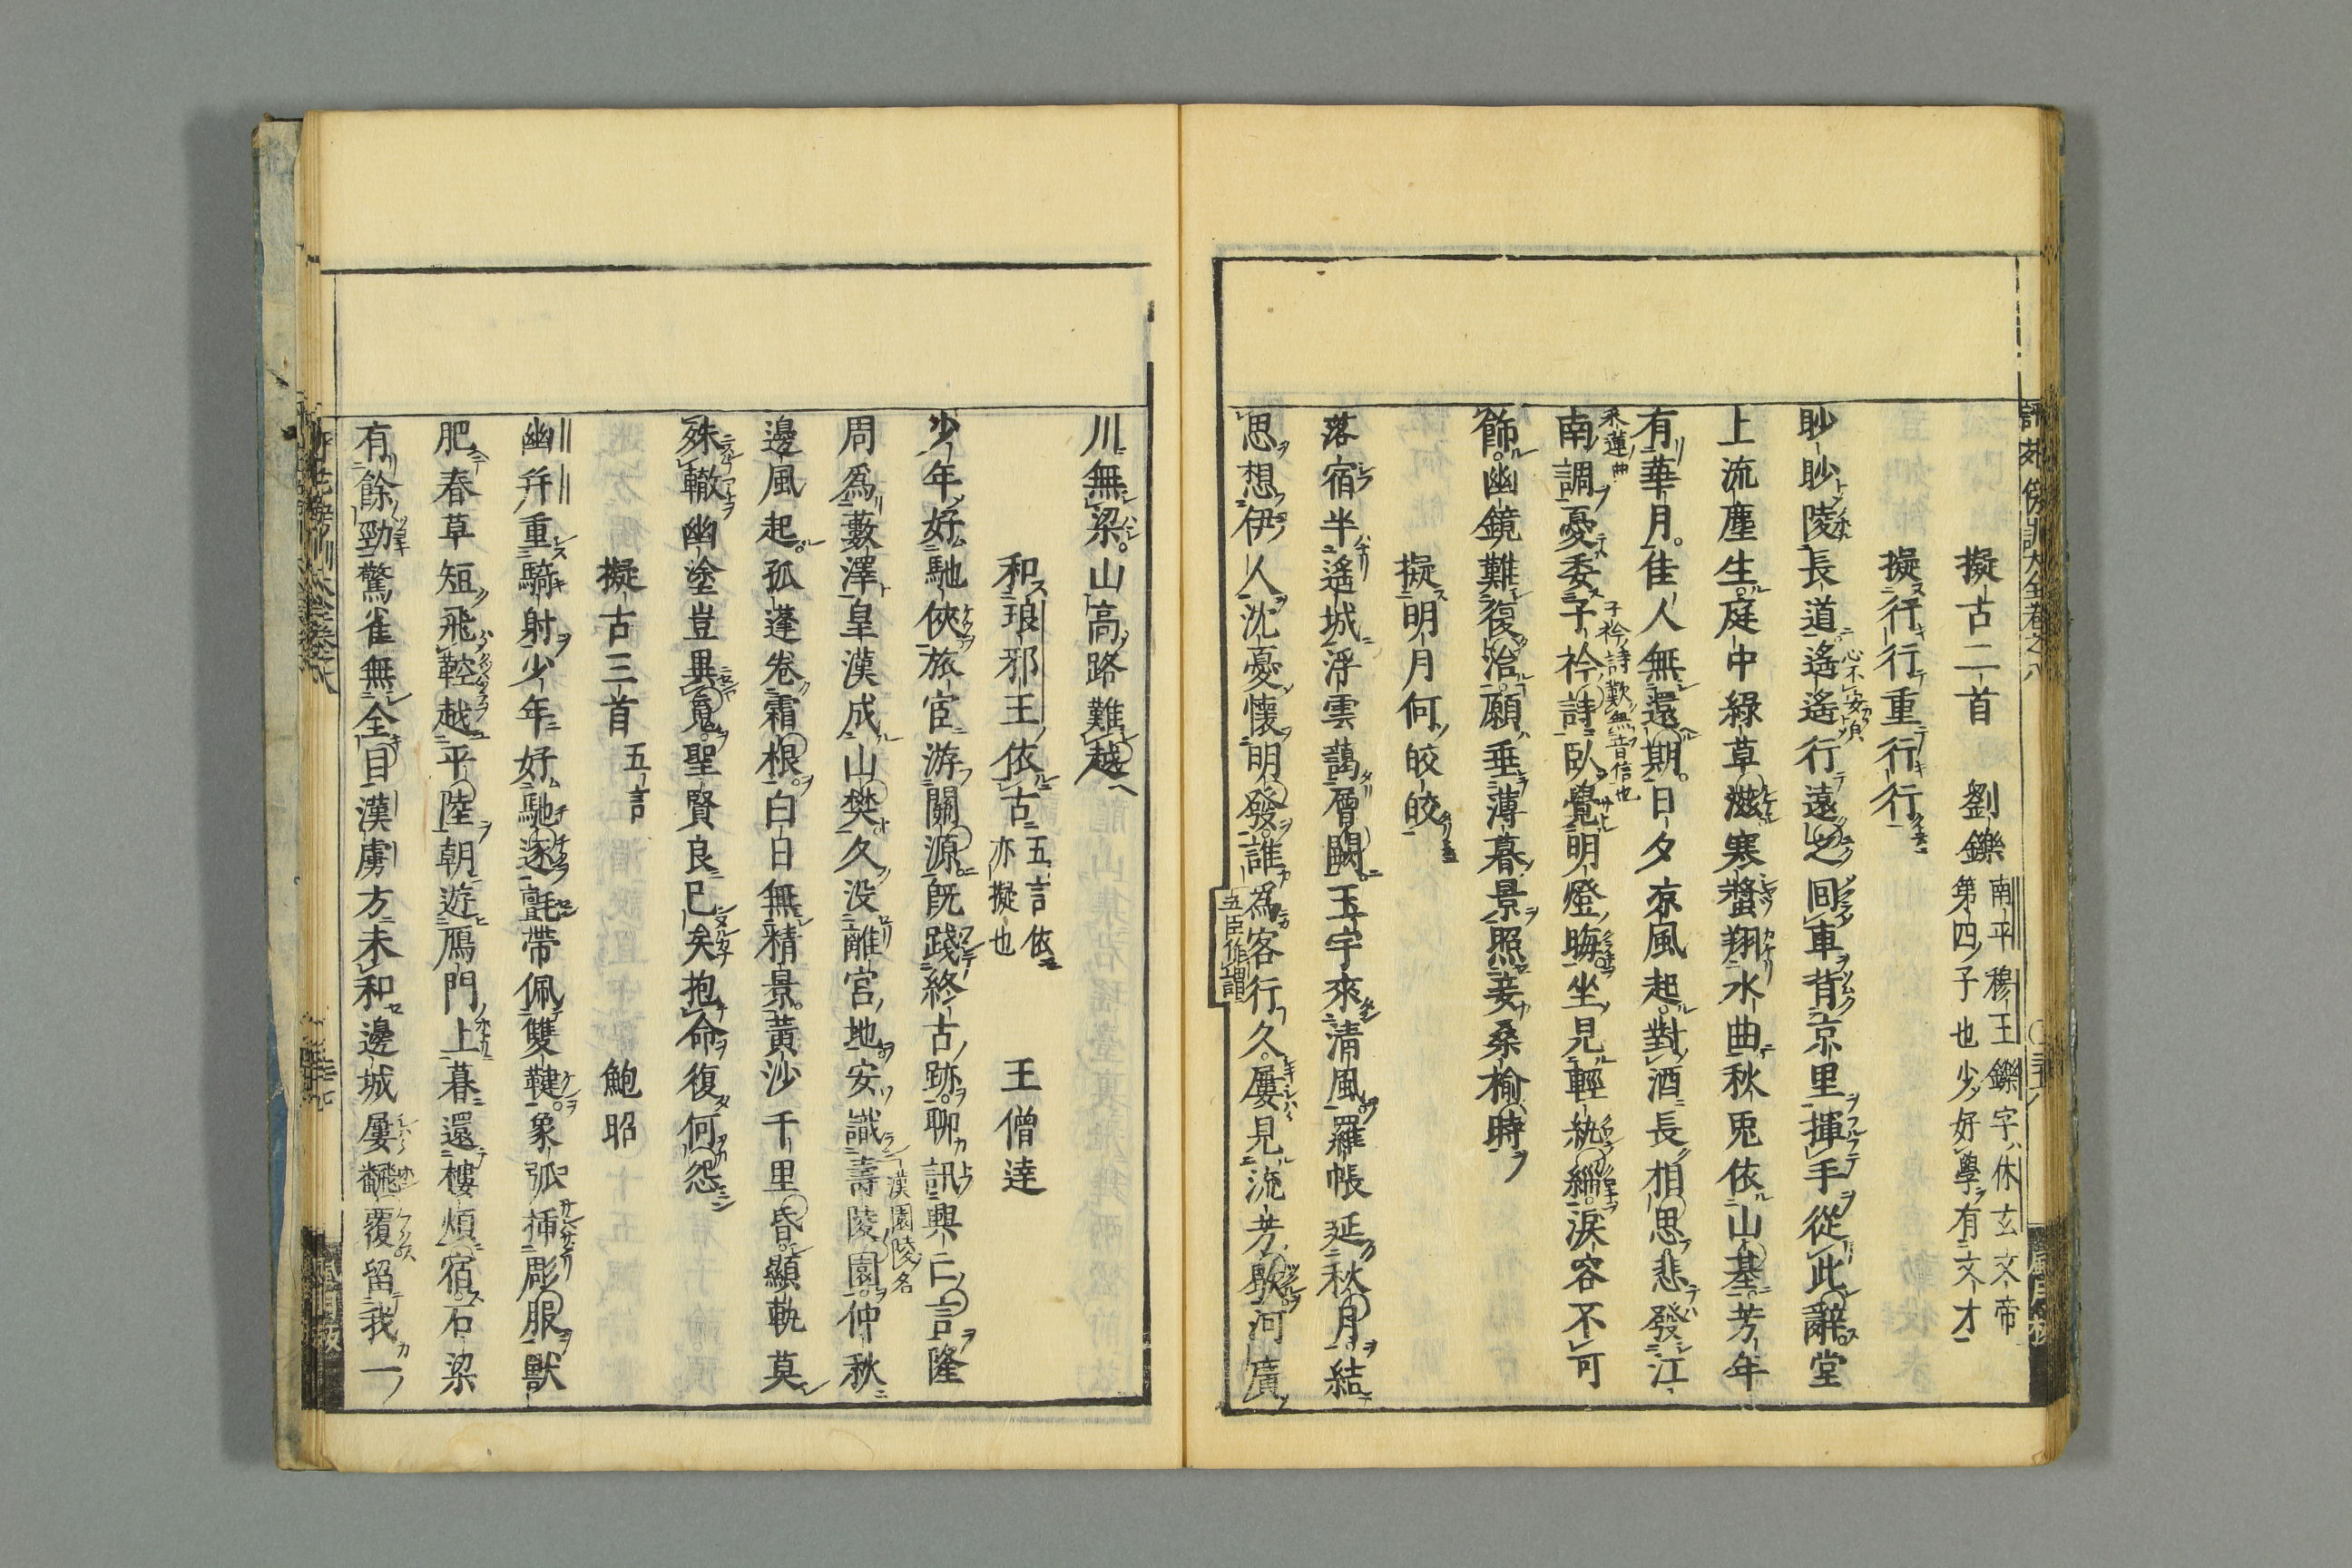 擬古二首　劉鑠
南平穆王鑠字休玄文帝
第四子也少好學有文才
擬行行重行行
眇眇陵長道遙遙行遠之回車背京里揮手從此辭堂
心不安皃
上流塵生庭中綠草滋寒螿翔水曲秋兎依山基芳年
有華月佳人無還期日夕凉風起對酒長相思悲發江
采蓮曲
南調憂委子衿詩臥覺明燈晦坐見輕紈緇淚容不可
子衿詩歎無音信也
飾幽鏡難復治願垂薄暮景照妾桑榆時
擬明月何皎皎
落宿半遙城浮雲藹層闕玉宇來清風羅帳延秋月結
思想伊人沈憂懷明發誰爲客行久屢見流芳歇河廣
五臣作謂
川無梁山高路難越
和琅邪王依古　王僧達
五言依
亦擬也
少年好馳俠旅宦游關源旣踐終古跡聊訊興亡言隆
周爲藪澤皇漢成山樊久没離宮地安識壽陵園仲秋
漢園陵名
邊風起孤蓬卷霜根白日無精景黃沙千里昏顯軌莫
殊轍幽塗豈異䰟聖賢良已矣抱命復何怨
擬古三首五言　鮑昭
幽幷重騎射少年好馳逐氈帶佩雙鞬象弧插彫服獸
肥春草短飛鞚越平陸朝遊鴈門上暮還樓煩宿石梁
有餘勁驚雀無全目漢虜方未和邊城屢翻覆留我一